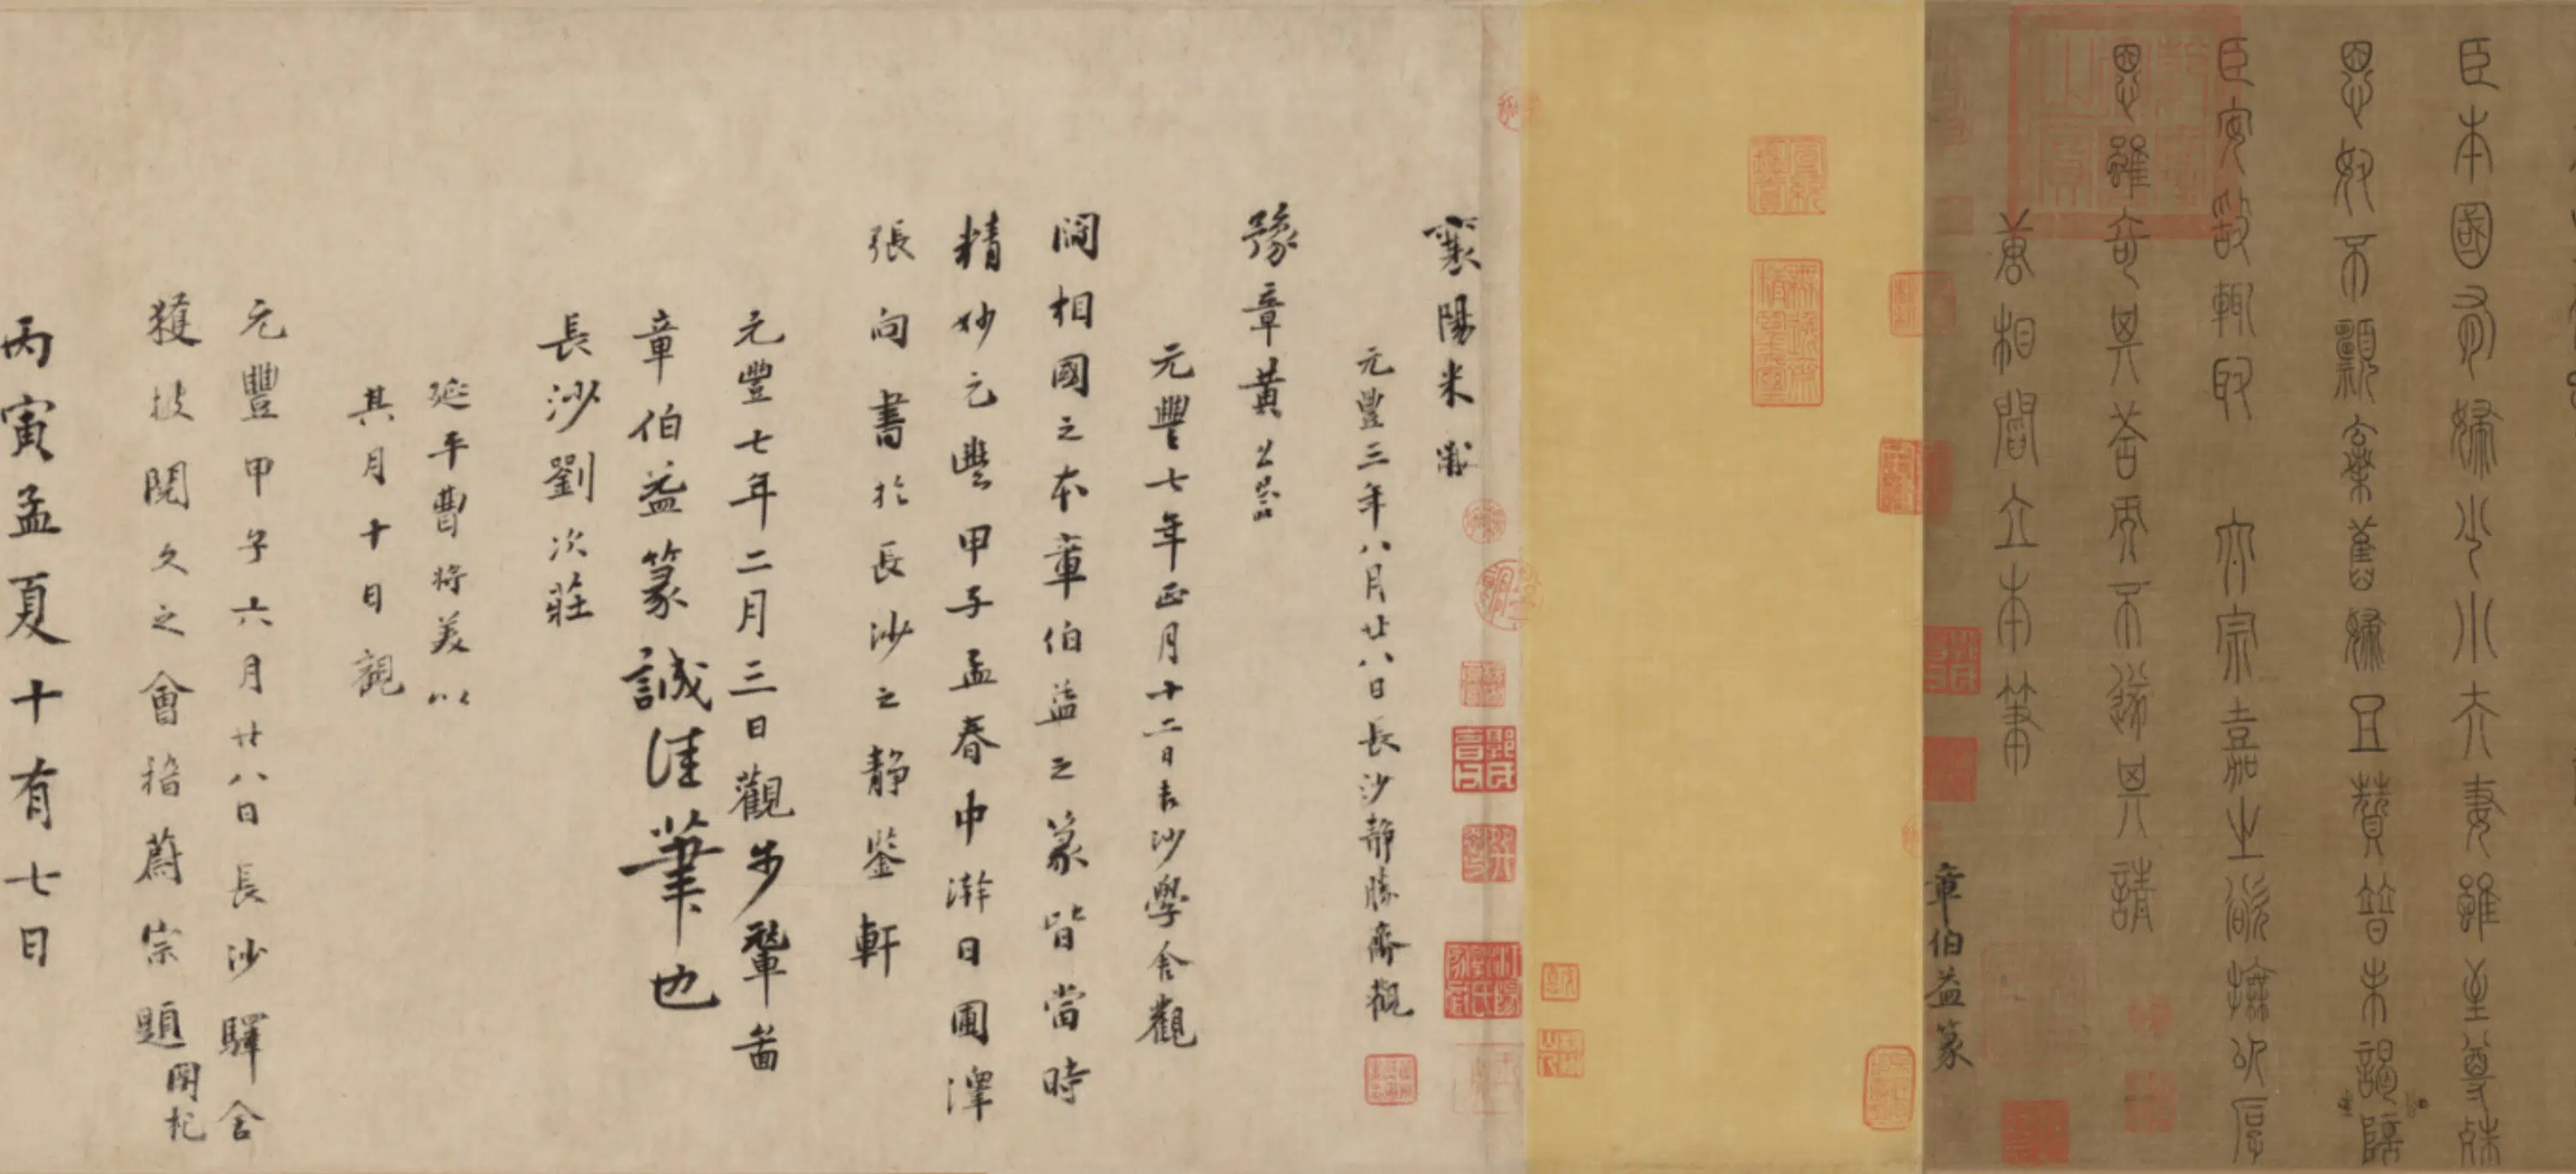 臣本國有婦少小夫妻雖至尊殊
恩奴不願棄舊婦且贊普未謁陛
臣安敢輒取
太宗嘉之欲撫以厚
恩雖奇其荅而不遂其請
唐相閻立本筆
章伯益篆
襄陽米黻
元豐三年八月廿八日長沙靜勝齋觀
豫章黃
元豐七年正月十二日長沙學舍觀
閻相國之本章伯益之篆皆當時
精妙元豐甲子孟春中澣日圃澤
張向書於長沙之靜鑒軒
元豐七年二月三日觀步輦圖
章伯益篆誠佳筆也
長沙劉次莊
延平曹將美以
其月十日觀
元豐甲子六月廿八日長沙驛舍
獲披閱久之會稽蔚宗題
開杞
丙寅孟夏十有七日